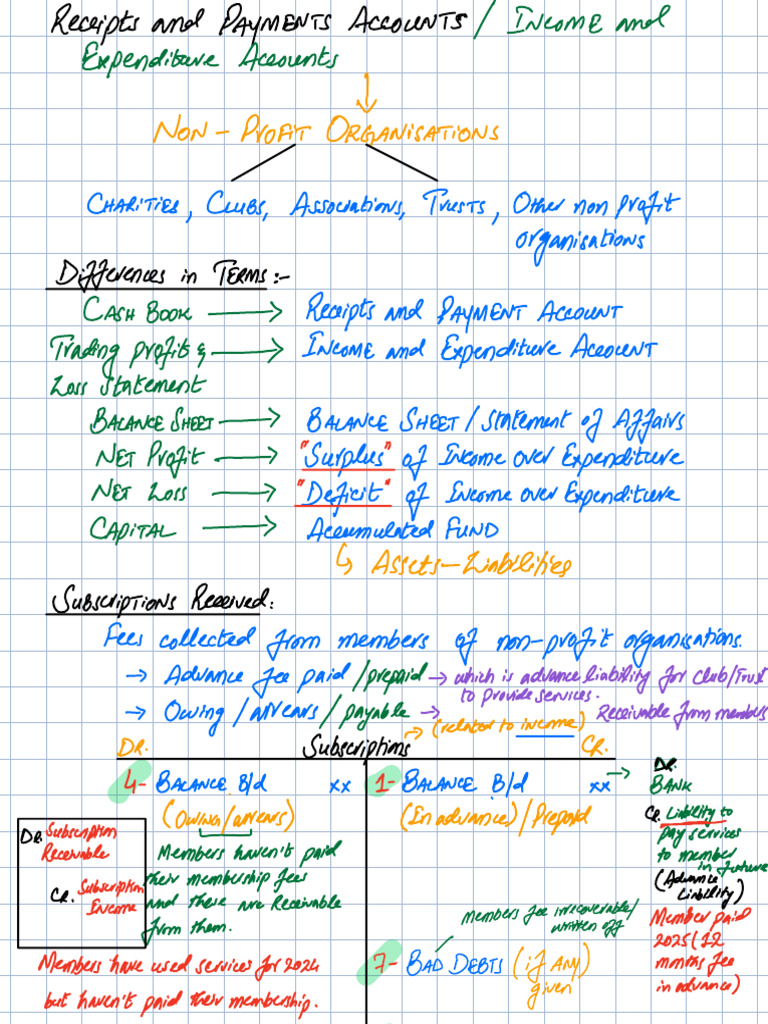 Receipts and Payments Accounts / Income and
Expenditure Accounts
Non-Profit Organisations
Charities, Clubs, Associations, Trusts, Other non profit
organisations
Differences in Terms:-
Cash Book → Receipts and Payment Account
Trading profit & → Income and Expenditure Account
Loss statement
Balance Sheet → Balance Sheet / Statement of Affairs
Net Profit → "Surplus" of Income over Expenditure
Net Loss → "Deficit" of Income over Expenditure
Capital → Accumulated Fund
↳ Assets - Liabilities
Subscriptions Received:
Fees collected from members of non-profit organisations.
→ Advance fee paid / prepaid → which is advance liability for club/Trust
to provide services.
→ Owing / arrears / payable → Receivable from members
DR. Subscriptions → (related to income) CR.
4- Balance B/d xx
(Owing/arrears)
Members haven't paid
their membership fees
and these are Receivable
from them.
DR. Subscription
Receivable
CR. Subscription
Income
Members have used services for 2024
but haven't paid their membership.
1- Balance B/d xx →
(In advance) / Prepaid
Members fee irrecoverable/
written off
7- Bad Debts (if any)
given
DR.
Bank
CR. Liability to
pay services
to member
in future
(Advance
Liability)
Member paid
2025 (12
months fee
in advance)